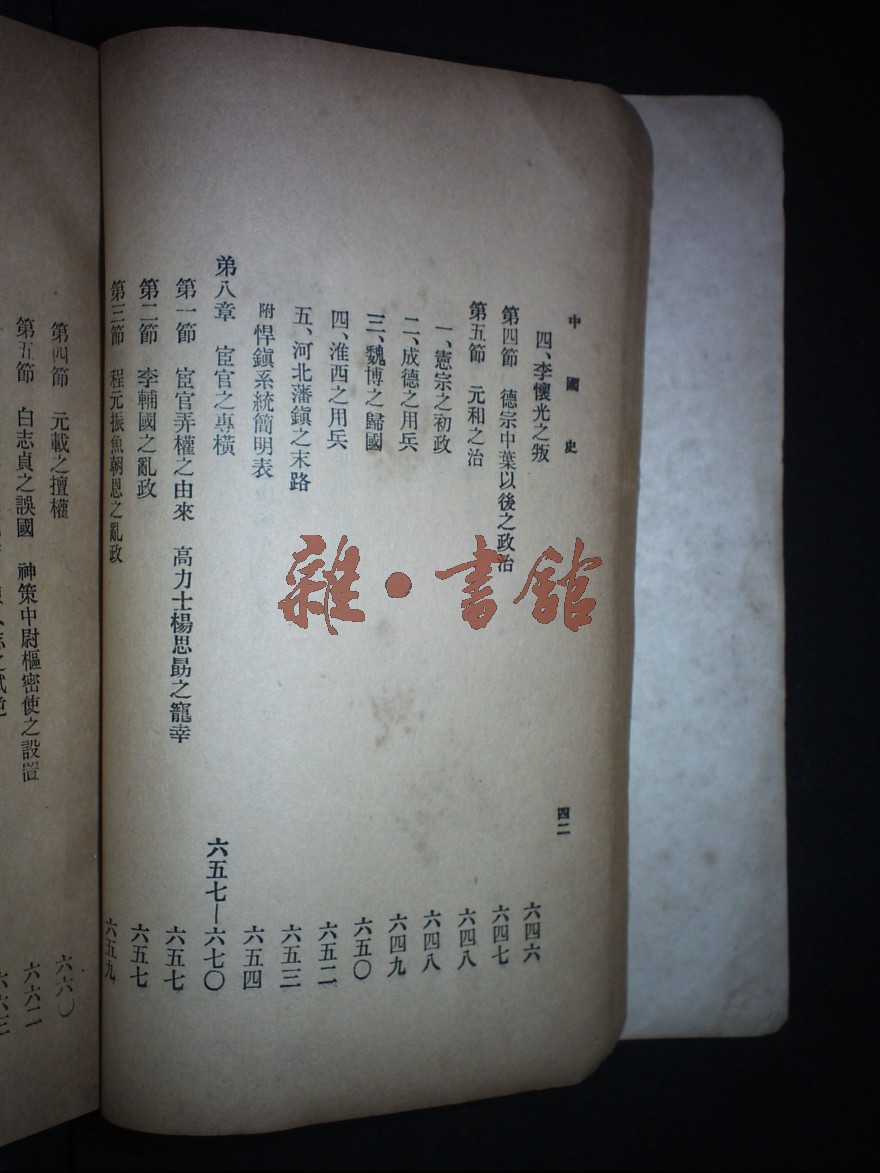 中國史
四二
四、李懷光之叛 六四六
第四節 德宗中葉以後之政治 六四七
第五節 元和之治 六四八
一、憲宗之初政 六四八
二、成德之用兵 六四九
三、魏博之歸國 六五〇
四、淮西之用兵 六五二
五、河北藩鎭之末路 六五三
附 悍鎭系統簡明表 六五四
弟八章 宦官之專橫 六五七—六七〇
第一節 宦官弄權之由來 高力士楊思勗之寵幸 六五七
第二節 李輔國之亂政 六五七
第三節 程元振魚朝恩之亂政 六五九
第四節 元載之擅權 六六〇
第五節 白志貞之誤國 神策中尉樞密使之設置 六六二
六六三
雜·書館